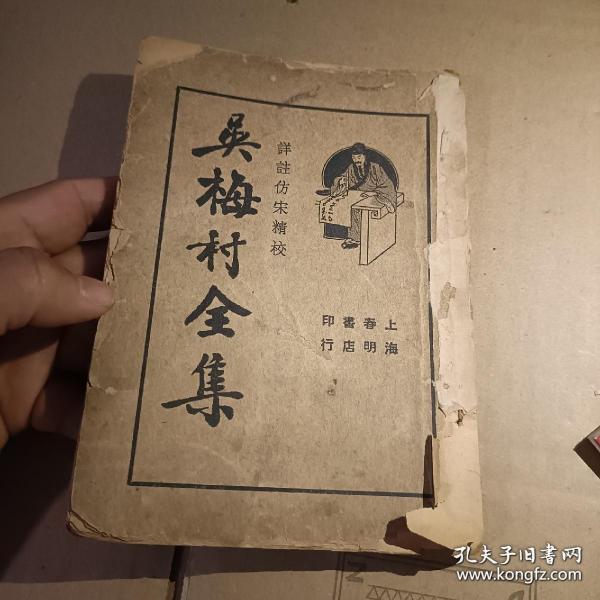 上海
春明
書店
印行
詳註仿宋精校
吳梅村全集
孔夫子旧书网
www.kongfz.com